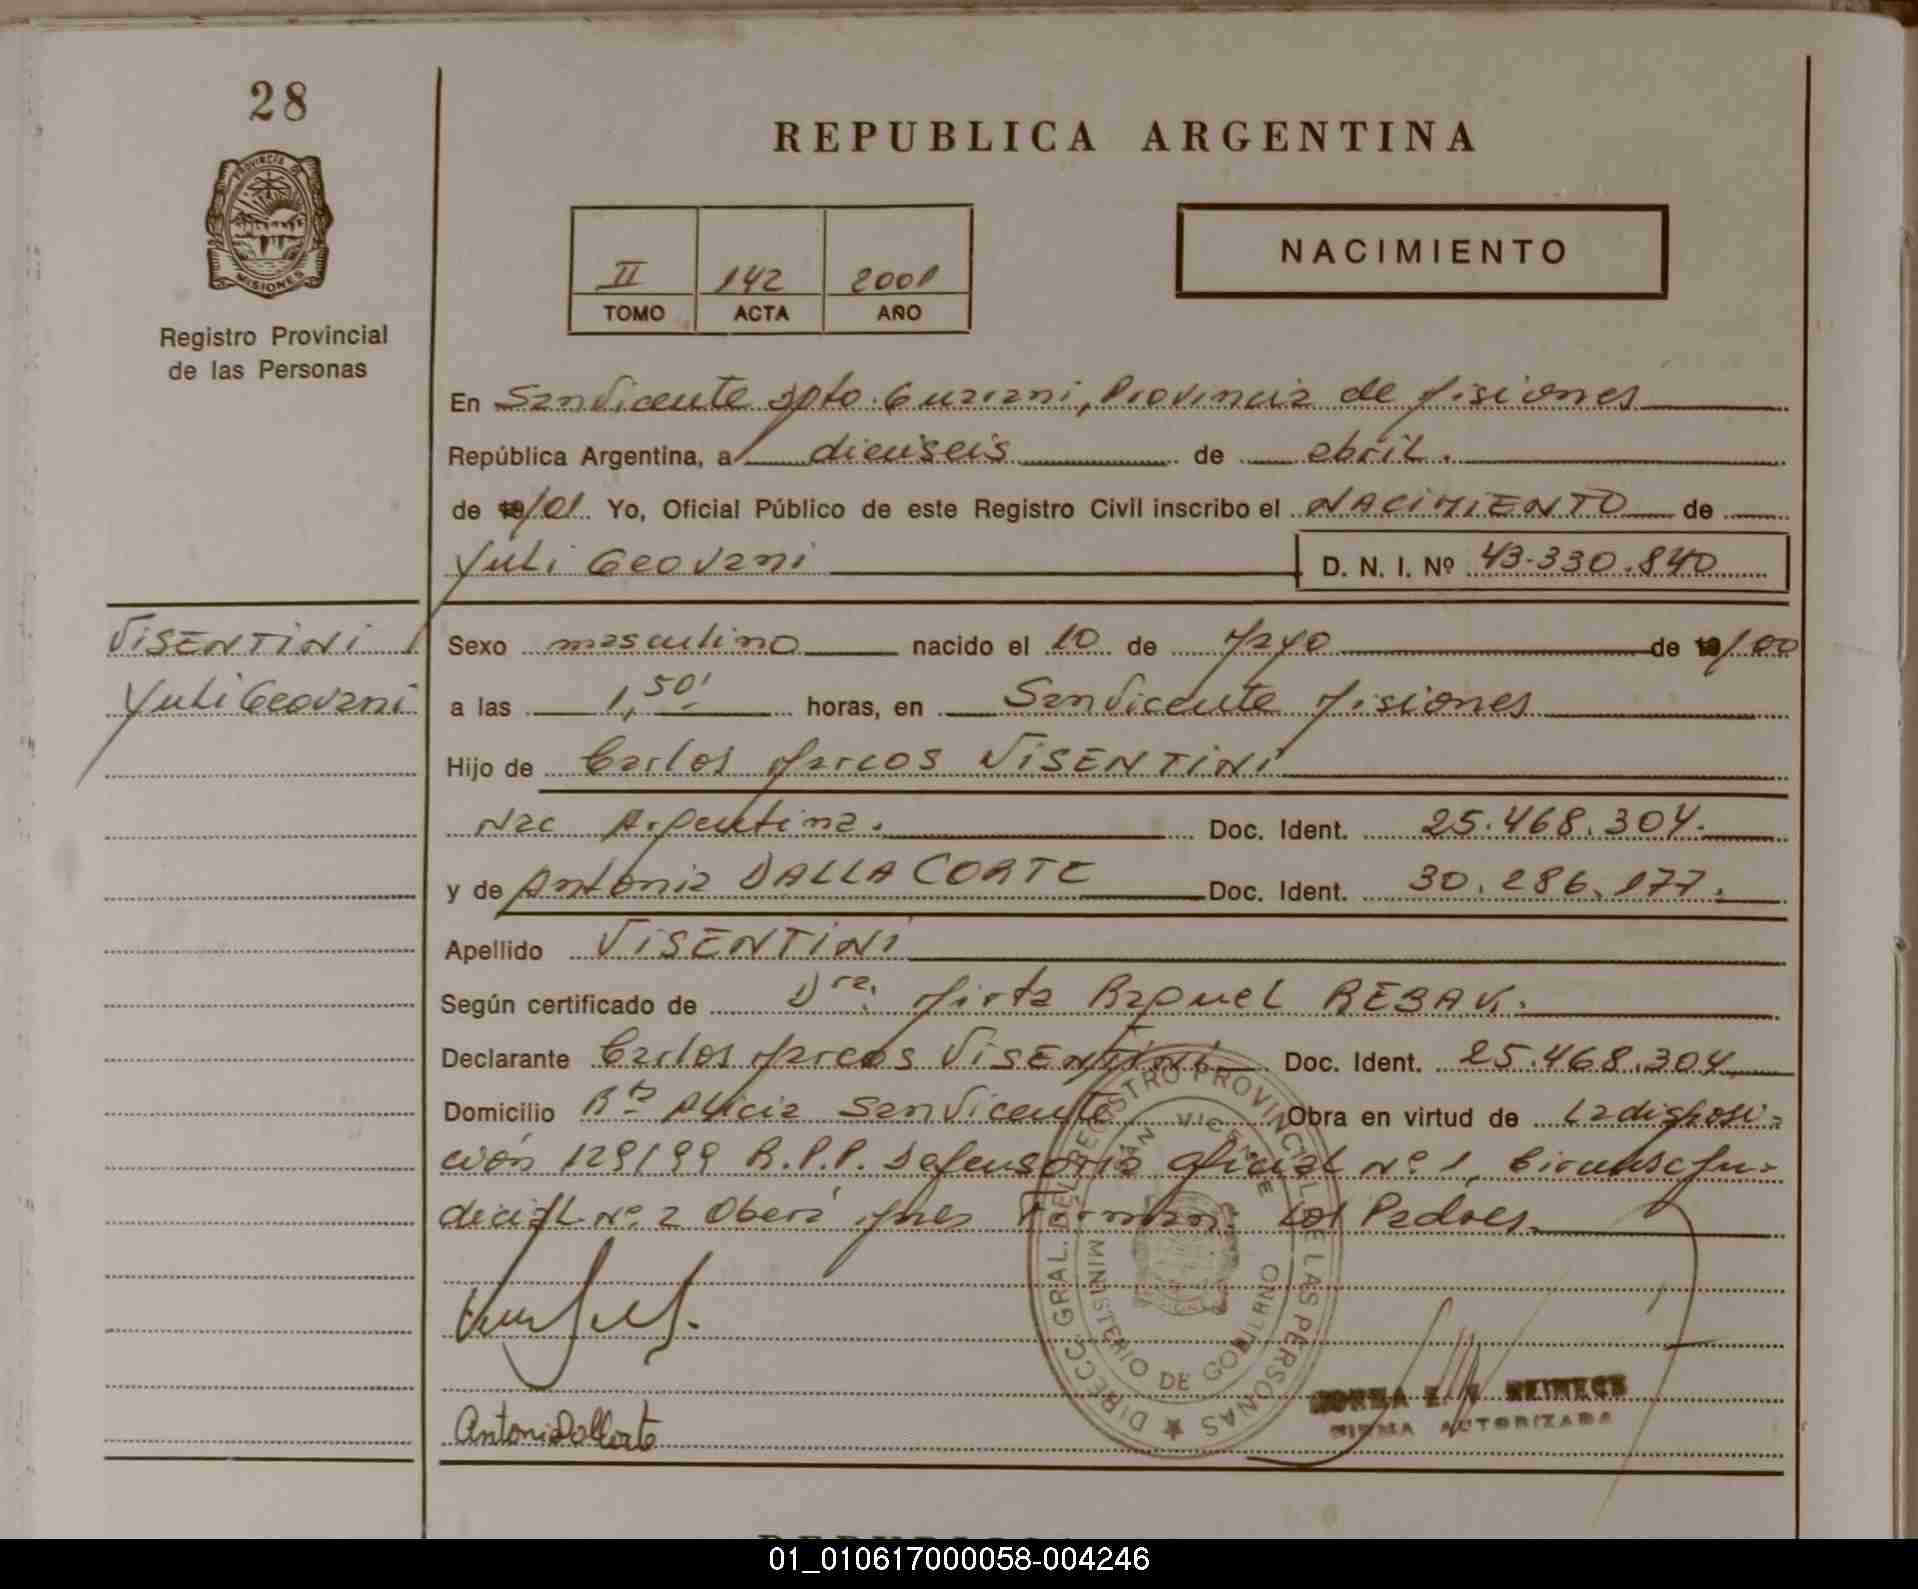 28
REPUBLICA ARGENTINA
PROVINCIA DE
MISIONES
Registro Provincial
de las Personas
II 142 2001
TOMO ACTA AÑO
NACIMIENTO
En San Vicente Dpto. Guarani, Provincia de Misiones
República Argentina, a dieciseis de abril.
de 19/01. Yo, Oficial Público de este Registro Civil inscribo el NACIMIENTO de
Yuli Geovani D. N. I. Nº 43.330.840
VISENTINI
Yuli Geovani
Sexo masculino nacido el 10 de Mayo de 19/00
a las 1,50' horas, en San Vicente Misiones
Hijo de Carlos Marcos VISENTINI
Nac Argentina. Doc. Ident. 25.468.304.
y de Antonia DALLA CORTE Doc. Ident. 30.286.177.
Apellido VISENTINI
Según certificado de Dra. Mirta Raquel REBAK.
Declarante Carlos Marcos VISENTINI Doc. Ident. 25.468.304
Domicilio Bº Alicia San Vicente Obra en virtud de La disposi-
ción 129/99 R.P.P. Defensoria Oficial Nº 1, Circunsc Ju-
dicial Nº 2 Oberá Mnes Firman Los Padres.
DIRECC. GRAL. DEL REGISTRO PROVINCIAL DE LAS PERSONAS
SAN VICENTE
MINISTERIO DE GOBIERNO
Antonia Dallacorte
NORMA E. REINECK
FIRMA AUTORIZADA
01_010617000058-004246